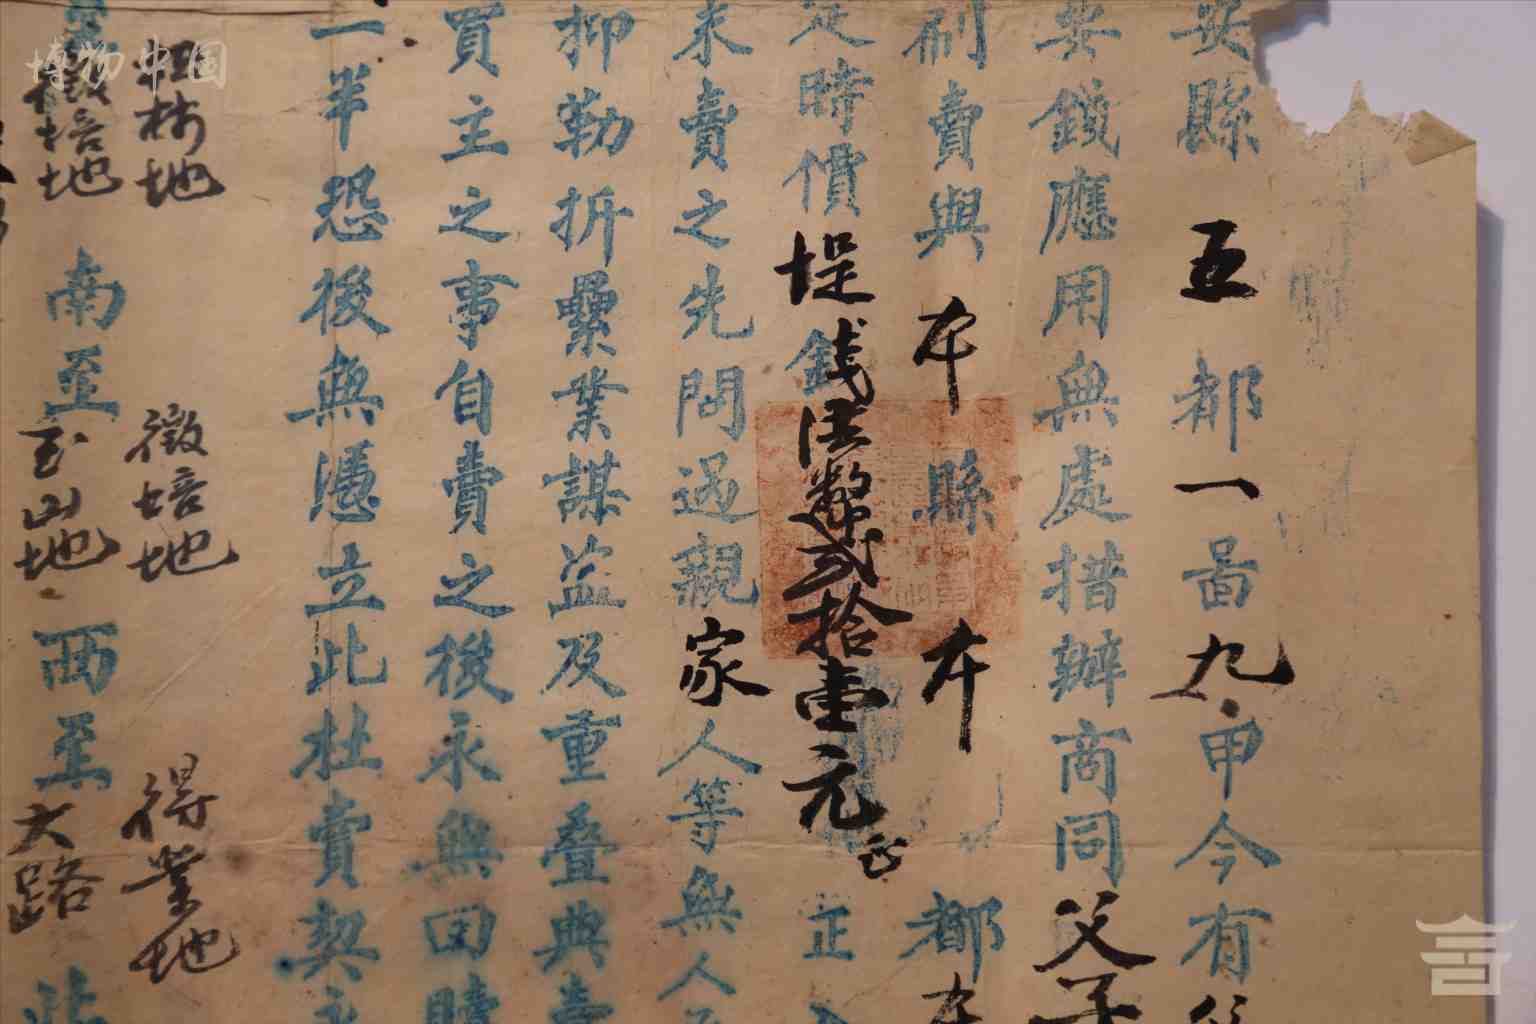 安縣五都一啚九甲今有
要錢應用無處措辦商同父子
制賣與本縣本都本
足時價堤錢法幣貳拾壹元正正入
來賣之先問過親家人等無人
抑勒折纍業謀益及重叠典賣
買主之事自賣之後永無回贖
一半恐後無憑立此杜賣契永
林地 徵培地 得業地
徵培地 南至玉山地 西至大路 北
博物中国